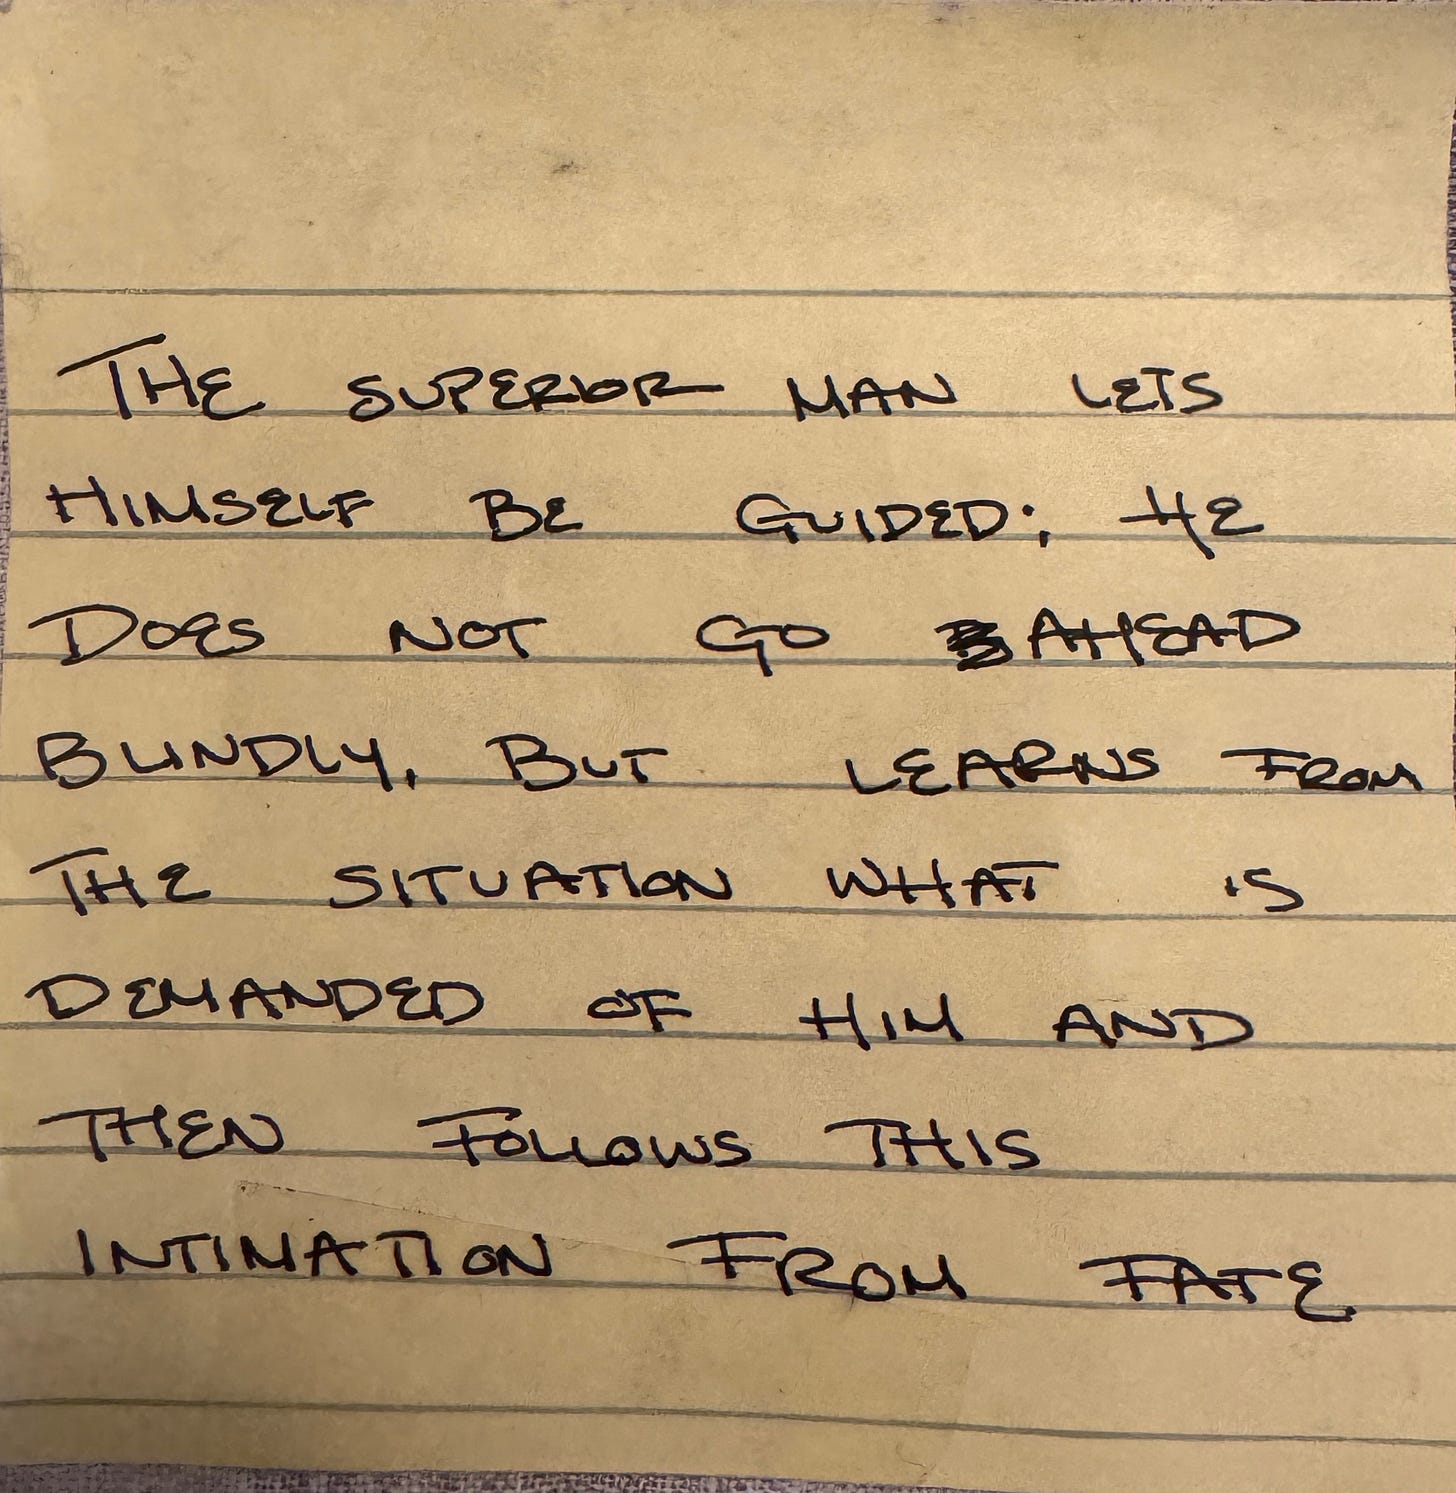 THE SUPERIOR MAN LETS
HIMSELF BE GUIDED; HE
DOES NOT GO AHEAD
BLINDLY, BUT LEARNS FROM
THE SITUATION WHAT IS
DEMANDED OF HIM AND
THEN FOLLOWS THIS
INTIMATION FROM FATE